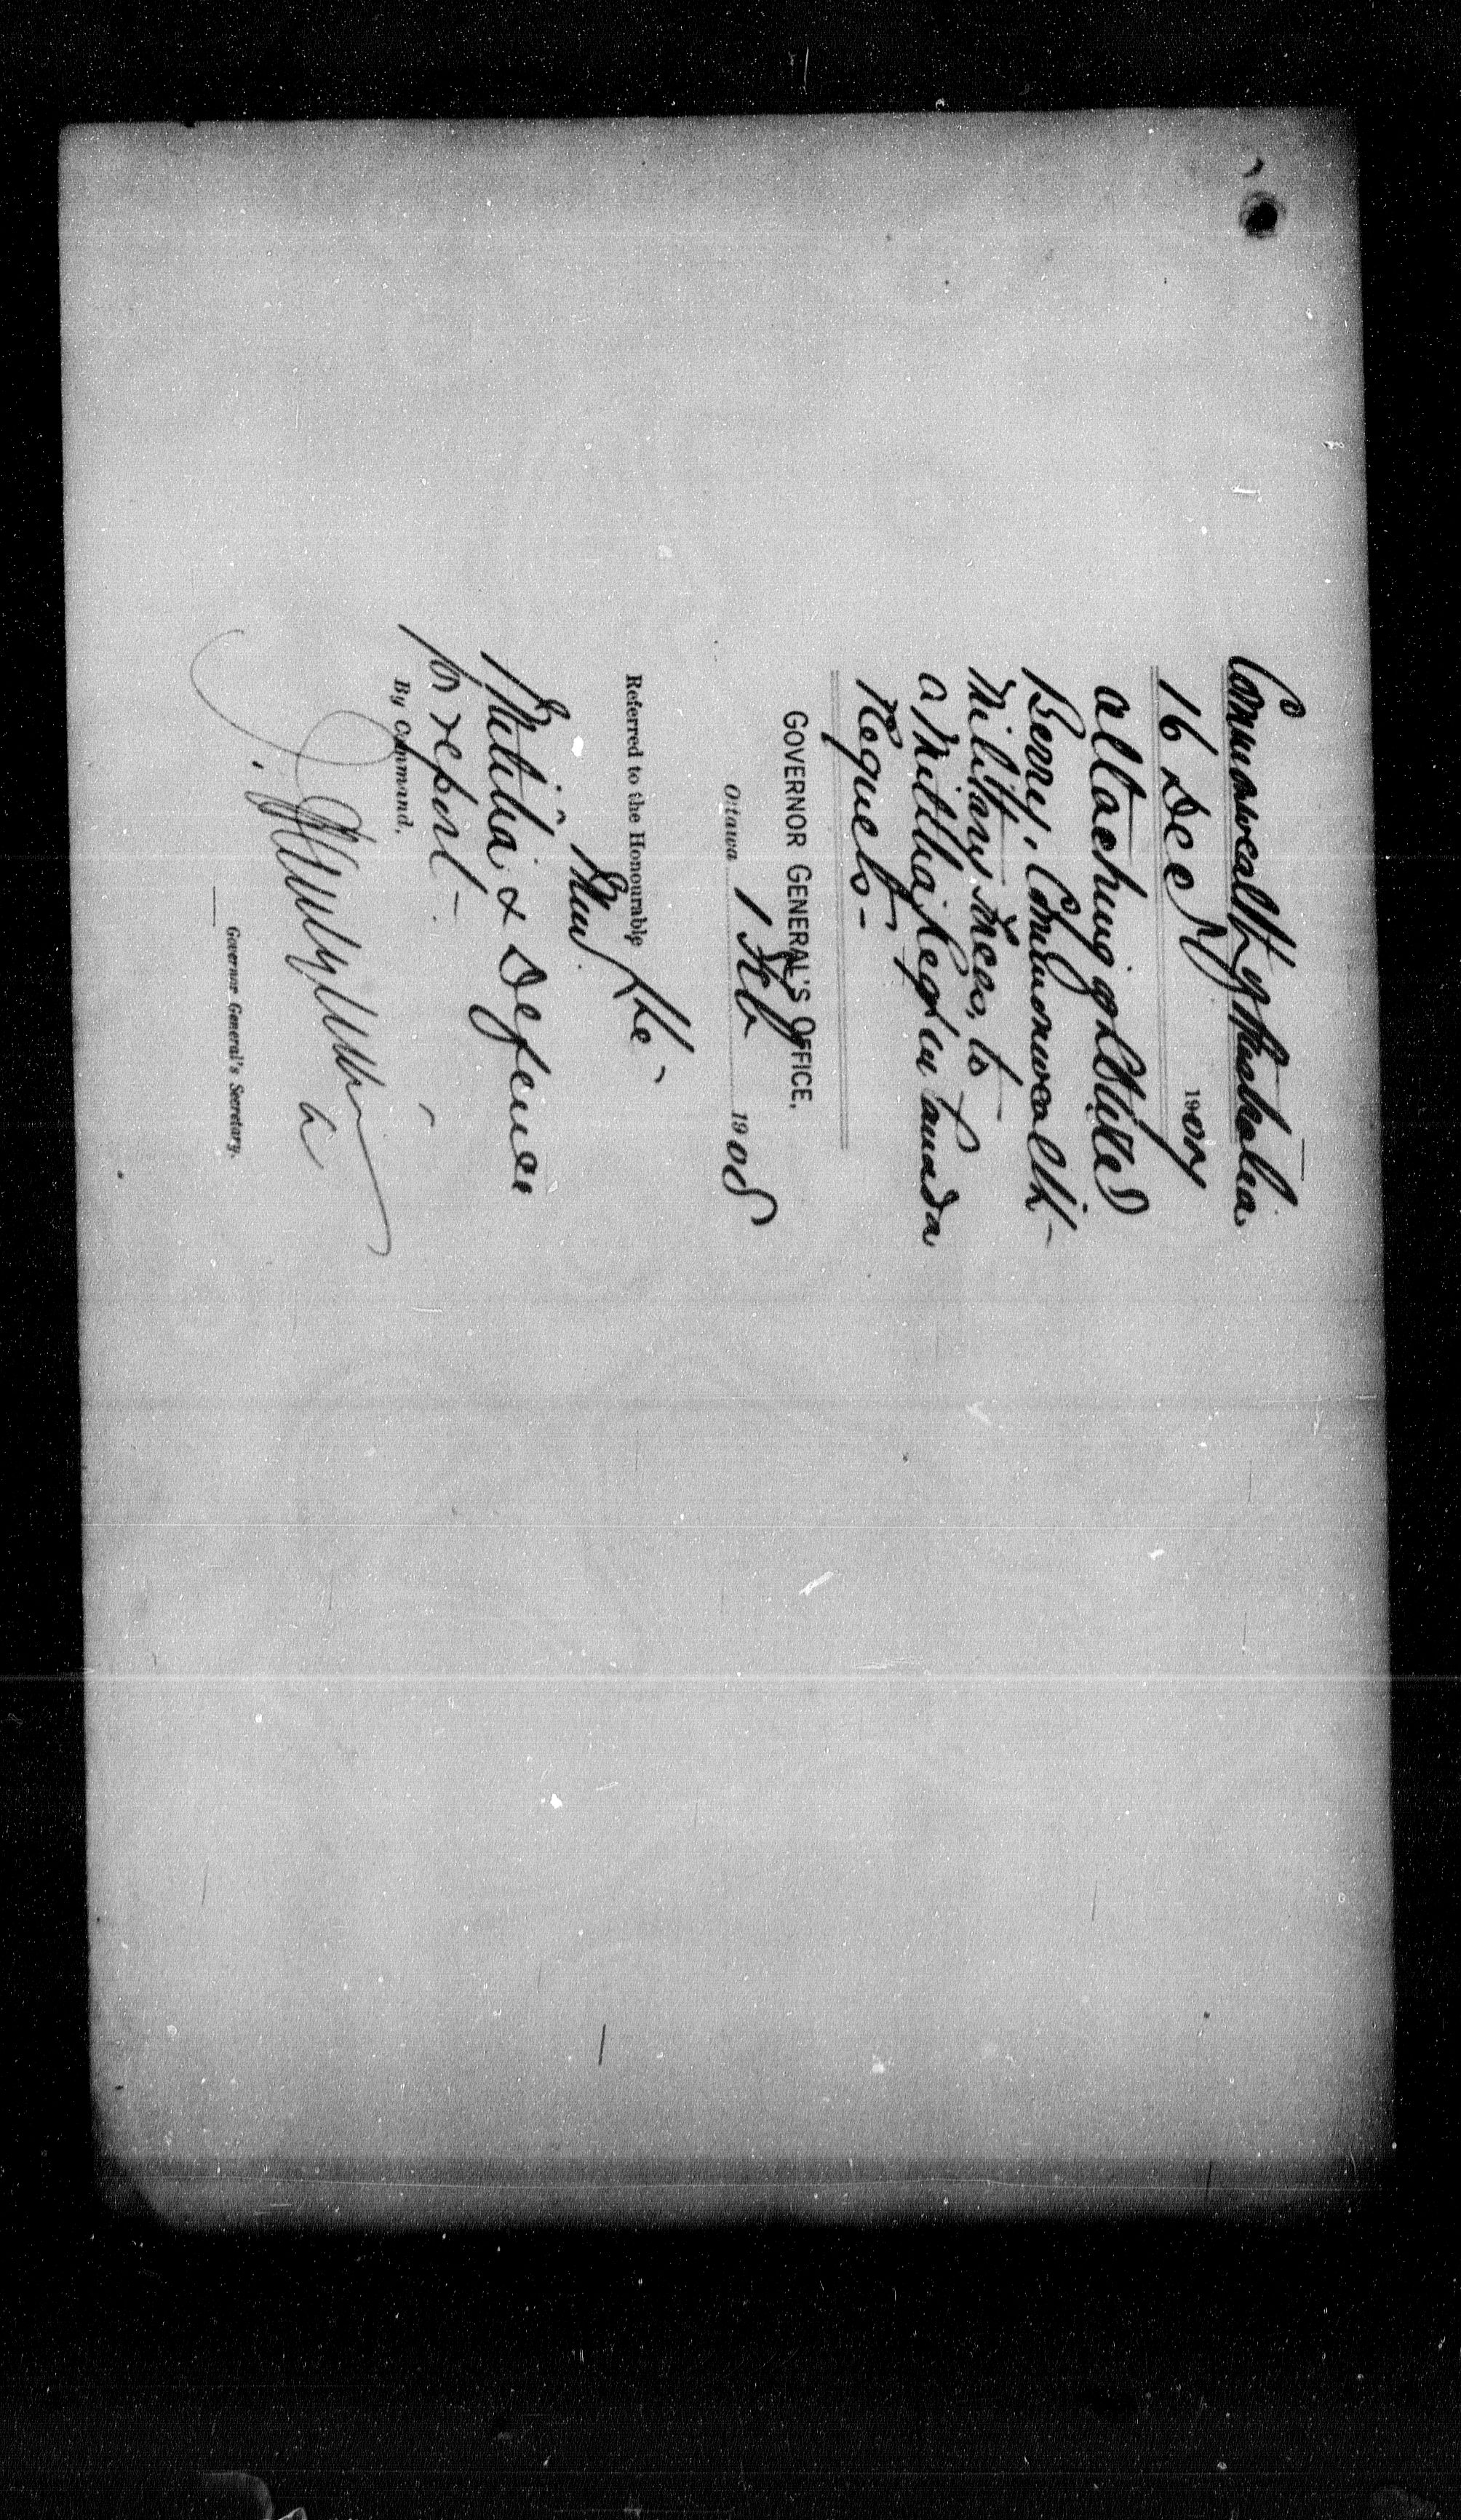 Commonwealth of Australia
16 Dec 1907
attaching of
Berry, Commonwealth
Military Forces, to
a Militia Regt in Canada
Requests -
GOVERNOR GENERAL'S OFFICE,
Ottawa 1 Feb 1908
Referred to the Honourable the
Min
Militia & Defence
for report -
By Command,
Governor General's Secretary.